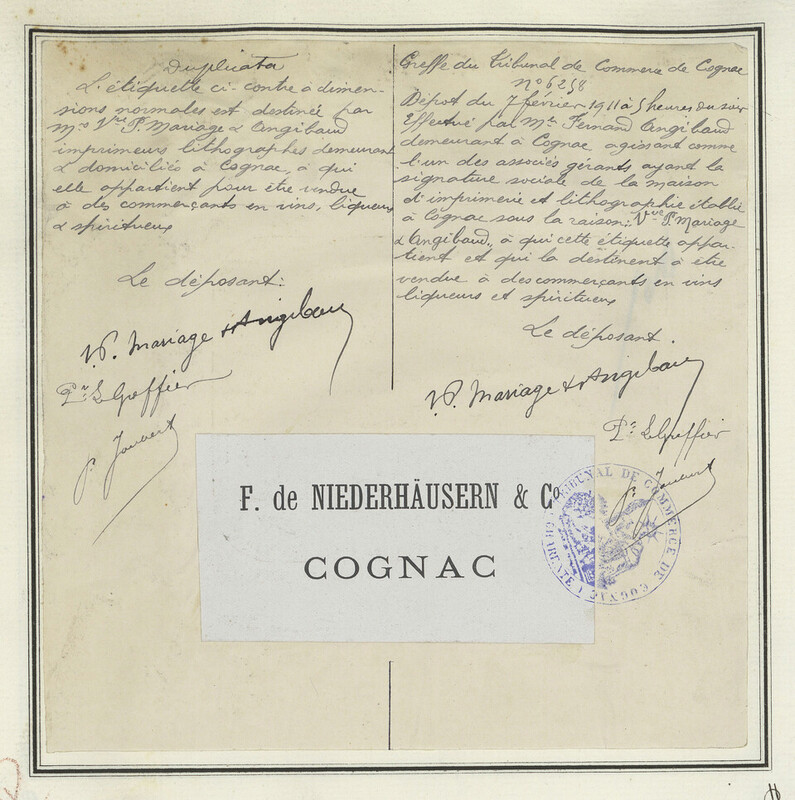 Duplicata
L'étiquette ci-contre à dimen-
sions normales est destinée par
Mrs Vve P. Mariage & Angibaud
imprimeurs lithographes demeurant
& domiciliés à Cognac, à qui
elle appartient pour être vendue
à des commerçants en vins, liqueurs
& spiritueux
Le déposant:
V.P. Mariage & Angibaud
Pr Le Greffier
P. Joubert
Greffe du Tribunal de Commerce de Cognac
No 6258
Dépot du 7 février 1911 à 5 heures du soir
Effectué par Mr Fernand Angibaud
demeurant à Cognac agissant comme
l'un des associés gérants ayant la
signature sociale de la maison
d'imprimerie et lithographie établie
à Cognac sous la raison: Vve P. Mariage
& Angibaud, à qui cette étiquette appar-
tient et qui la destinent à être
vendue à des commerçants en vins
liqueurs et spiritueux
Le déposant.
V.P. Mariage & Angibaud
Pr Le Greffier
P. Joubert
F. de NIEDERHÄUSERN & Co
COGNAC
TRIBUNAL DE COMMERCE DE COGNAC (CHARENTE)